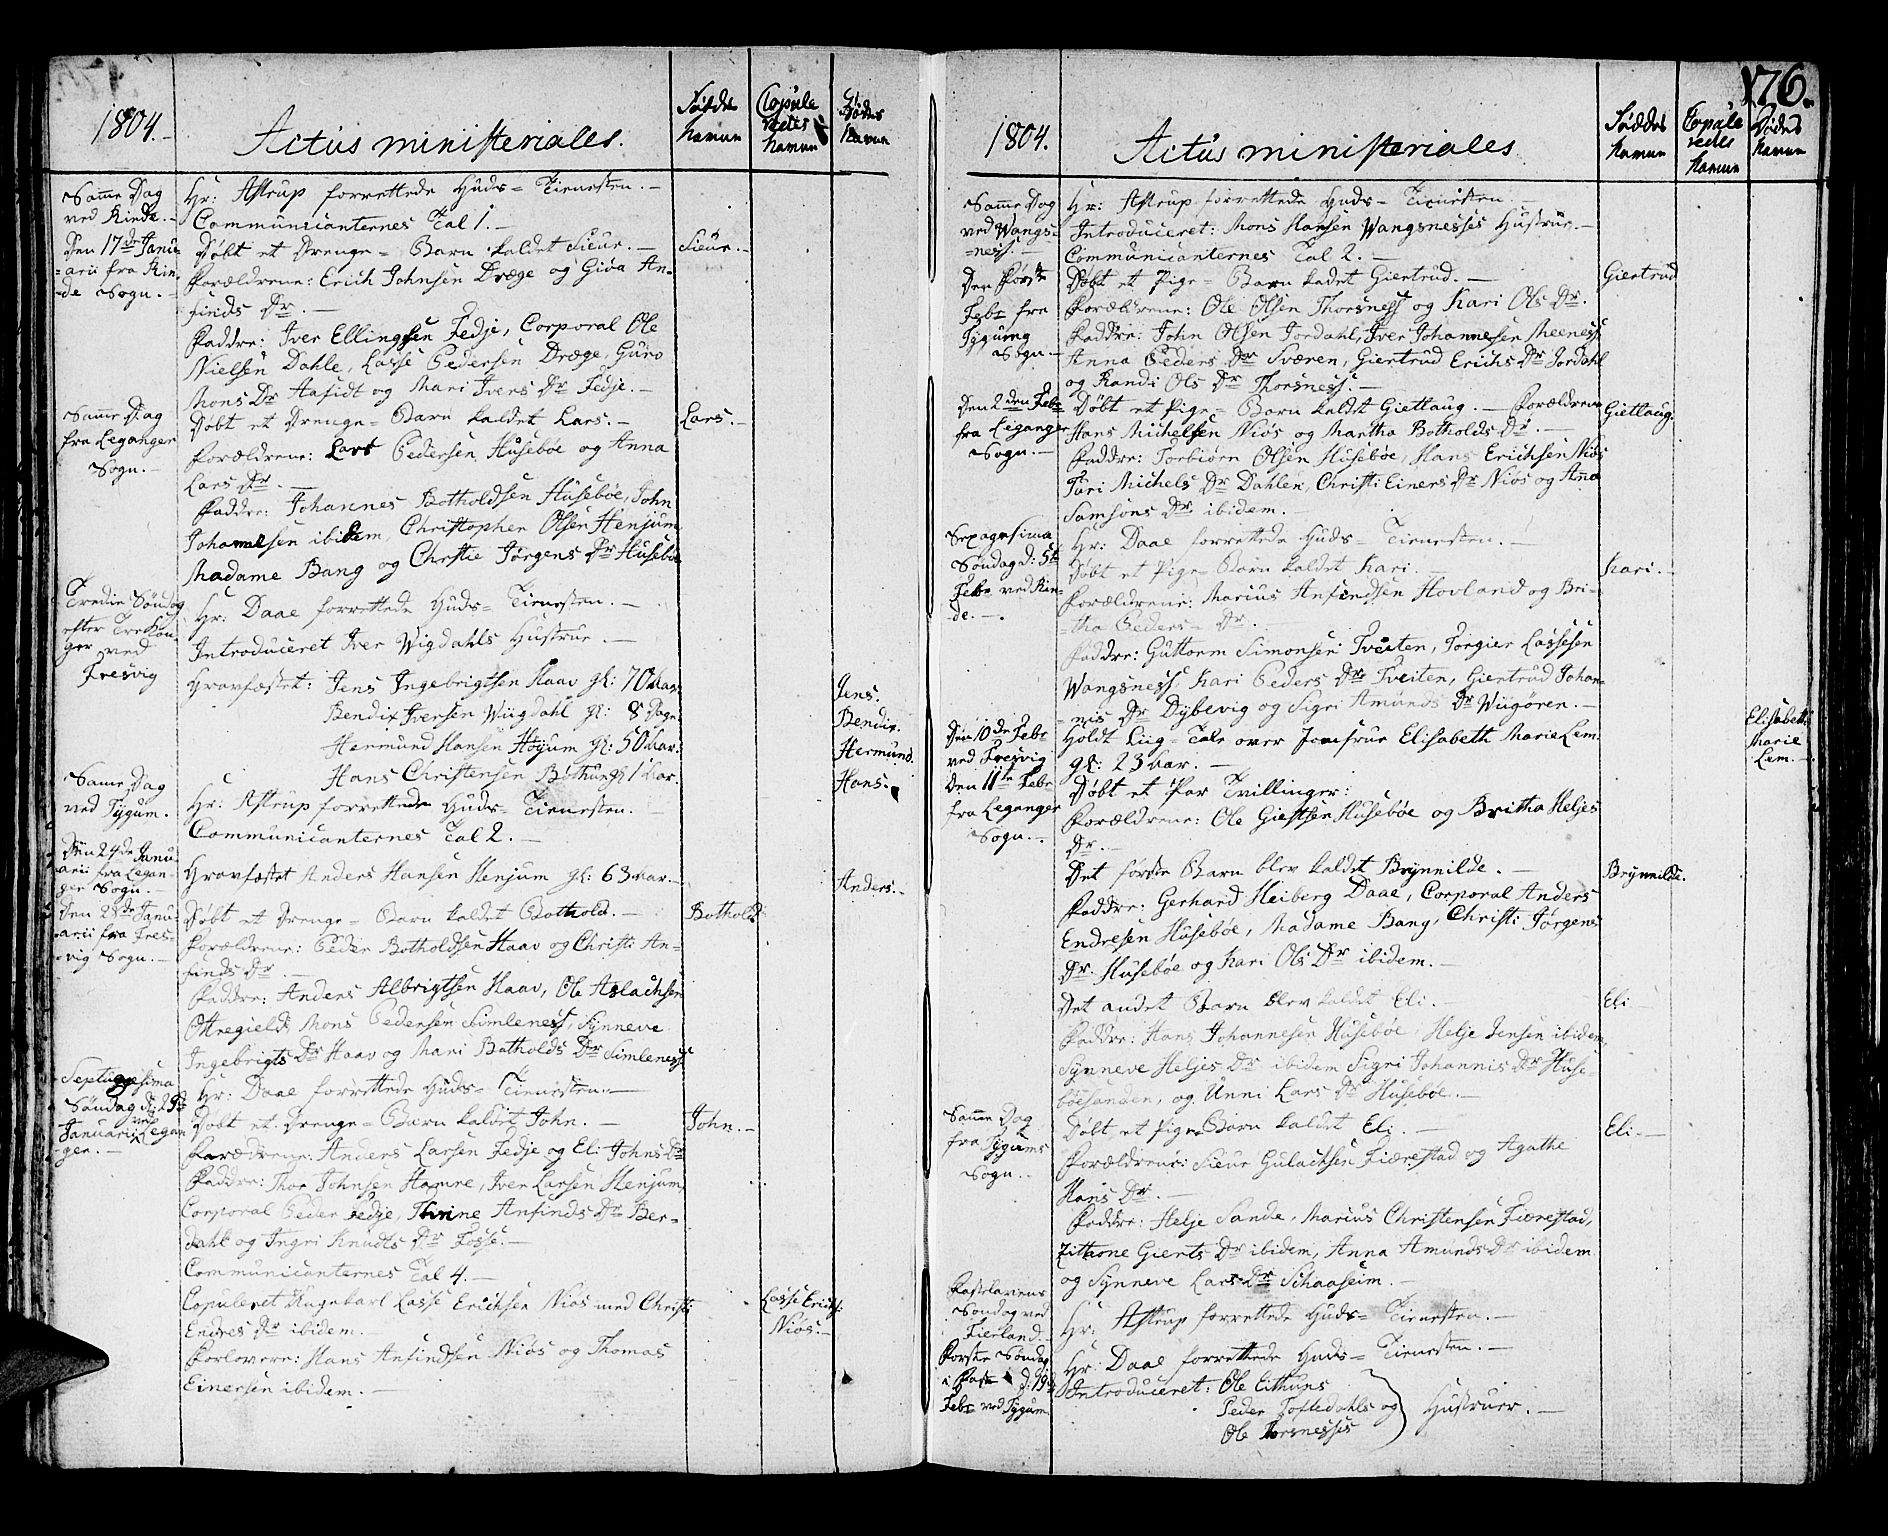 1804.
Actus ministeriales.
Fødde
Navne
Copule
redes
Navne
Dødes
Navne
Samme Dag
ved Rinde.
Hr: Astrup forrettede Guds-Tienesten.
Communicanternes Tal 1.
Den 17de Janu-
arii fra Rin-
de Sogn.
Døbt et Drenge-Barn kaldet Sieur.
Sieur.
Forældrene: Erich Johnsen Dræge og Giøa An-
finds Dr.
Faddre: Iver Ellingsen Fedje, Corporal Ole
Nielsen Dahle, Lasse Pedersen Dræge, Guro
Mons Dr Aafidt og Mari Ivers Dr Fedje.
Samme Dag
fra Leganger
Sogn.
Døbt et Drenge-Barn kaldet Lars.
Lars.
Forældrene: Lars Pedersen Husebøe og Anna
Lars Dr.
Faddre: Johannes Botholdsen Husebøe, John
Johannesen ibidem, Christopher Olsen Henjum,
Madame Bang og Christie Jørgens Dr Husebøe
Tredie Søndag
efter Tre Kon-
ger ved
Fresvig
Hr: Daae forrettede Guds-Tienesten.
Introduceret Iver Wigdahls Hustrue.
Gravfæstet: Jens Ingebrigtsen Haav gl: 70 Aar.
Bendix Iversen Wiigdahl gl: 8 Dage
Hermund Hansen Høyum gl: 50 Aar.
Hans Christensen Bøthun gl 1 Aar.
Jens.
Bendix.
Hermund.
Hans.
Samme Dag
ved Tygum.
Hr: Astrup forrettede Guds-Tienesten.
Communicanternes Tal 2.
Den 24de Janu-
arii fra Legan-
ger Sogn.
Gravfæstet Anders Hansen Henjum gl: 63 Aar.
Anders.
Den 25de Janu-
arii fra Fres-
vig Sogn.
Døbt et Drenge-Barn kaldet Bothold.
Bothold.
Forældrene: Peder Botholdsen Haav og Christi An-
finds Dr.
Faddre: Anders Albrigtsen Haav, Ole Aslachsen
Ottregield, Mons Pedersen Simleness, Synneve
Ingebrigts Dr Haav og Mari Botholds Dr Simleness
Septuagesima
Søndag d: 29de
Januarii ved Legan-
ger.
Hr: Daae forrettede Guds-Tienesten.
Døbt et Drenge-Barn kaldet John.
John.
Forældrene: Anders Larsen Fedje og Eli Johns Dr
Faddre: Thor Johnsen Hamre, Iver Larsen Henjum,
Corporal Peder Fedje, Anfinds Dr Ber-
dahl og Ingri Knudts Dr Fosse.
Communicanternes Tal 4.
Copuleret Ungkarl Lasse Erichsen Niøs med Christi
Endres Dr ibidem.
Lasse Erichs:
Niøs.
Forlovere: Hans Anfindsen Niøs og Thomas
Einersen ibidem.
176.
1804.
Actus ministeriales
Fødde
Navne
Copule
redes
Navne
Dødes
Navne
Samme Dag
ved Wangs-
ness.
Hr: Astrup forrettede Guds-Tienesten.
Introduceret: Mons Hansen Wangsnesses Hustrue.
Communicanternes Tal 2.
Den Første
Febr fra
Tygums
Sogn.
Døbt et Pige-Barn kaldet Giertrud.
Giertrud
Forældrene: Ole Olsen Thorsness og Kari Ols Dr.
Faddre: John Olsen Jordahl, Iver Johannesen Meeness,
Anna Peders Dr Sværen, Giertrud Erichs Dr Jordahl
og Randi Ols Dr Thorsness.
Den 2den Febr
fra Leganger
Sogn.
Døbt et Pige-Barn kaldet Gietlaug. Forældrene
Gietlaug.
Hans Michelsen Niøs og Martha Botholds Dr.
Faddre: Torbiørn Olsen Husebøe, Hans Erichsen Niøs
Turi Michels Dr Dahlen, Christi Einers Dr Niøs og Anna
Samsons Dr ibidem.
Sexagesima
Søndag d: 5te
Febr ved Rin-
de.
Hr: Daae forrettede Guds-Tienesten.
Døbt et Pige-Barn kaldet Kari.
Kari.
Forældrene: Marius Anfindsen Hovland og Bri-
tha Peders Dr.
Faddre: Guttorm Simonsen Tveiten, Torgier Lassesen
Wangsness, Kari Peders Dr Tveiten, Giertrud Johan-
nis Dr Dybevig og Sigri Amunds Dr Wiigøren.
Den 10de Febr
ved Fresvig
Holdt Liig-Tale over Jomfrue Elisabeth Marie Lem
gl: 23 Aar.
Elisabeth
Marie
Lem.
Den 11te Febr
fra Leganger
Sogn.
Døbt et Par Tvillinger:
Forældrene: Ole Gietsen Husebøe og Britha Heljes
Dr.
Det første Barn blev kaldet Brynnilde.
Brynnilde.
Faddre: Gerhard Heiberg Daae, Corporal Anders
Endresen Husebøe, Madame Bang, Christi Jørgens
Dr. Husebøe og Kari Ols Dr ibidem.
Det andet Barn blev kaldet Eli.
Eli
Faddre: Hans Johannesen Husebøe, Helje Jensen ibidem
Synneve Heljes Dr ibidem Sigri Johannis Dr Huse-
bøesanden, og Unni Lars Dr Husebøe.
Samme Dag
fra Tygums
Sogn.
Døbt et Pige-Barn kaldet Eli.
Eli.
Forældrene: Sieur Gulachsen Fiærestad og Agathe
Hans Dr.
Faddre: Helje Sande, Marius Christensen Fiærestad,
Gierts Dr ibidem, Anna Amunds Dr ibidem
og Synneve Lars Dr Schaaseim.
Fastelavens
Søndag ved
Fierland.
Hr: Astrup forrettede Guds-Tienesten.
Første Søndag
i Faste d: 19de
Febr ved Tygum.
Hr: Daae forrettede Guds-Tienesten.
Introduceret: Ole Eithuns
Peder Tofledahls og
Ole Thorsnesses
Hustruer.